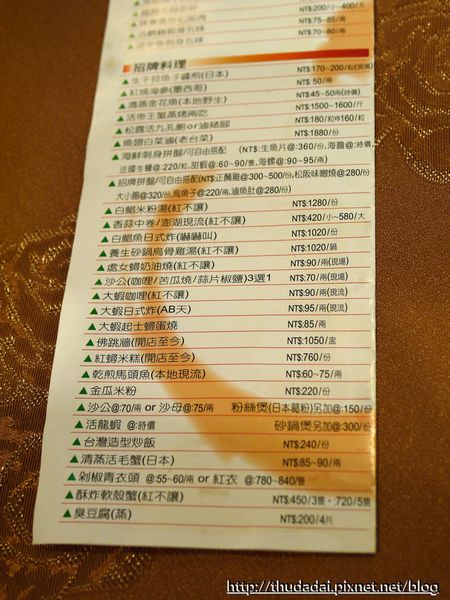 NT$:75~85/兩
NT$:70~80/兩
招牌料理
▲生干貝魚子醬煎(日本) NT$:170~200/粒(現場)
▲紅燒海參(墨西哥) NT$:50/兩
▲清蒸金花魚(本地野生) NT$:45~50/兩(特價)
▲活帝王蟹蒸烤兩吃 NT$:1500~1600/斤
▲松露活九孔鮑or滷豬腳 NT$:180/粒 160/粒
▲魚翅白菜滷(老台菜) NT$:1880/份
▲海鮮刺身拼盤/可自由搭配(NT$:生魚片@:360/份,海膽@:特價
法國生蠔@:220/粒,甜蝦@:60~90/隻,海螺@:90~95/兩)
▲招牌拼盤/可自由搭配(NT$:正醃蚵@:300~500/份,松阪味噌燒@:280/份
大小腸@320/份,烏魚子@220/兩,滷魚肚@:280/份)
▲白鯧米粉湯(紅不讓) NT$:1280/份
▲香蒜中卷/澎湖現流(紅不讓) NT$:420/小~580/大
▲白鯧魚日式炸(嚇嚇叫) NT$:1020/份
▲養生砂鍋烏骨雞湯(紅不讓) NT$:1020/鍋
▲處女蟳奶油燒(紅不讓) NT$:90/兩(現場)
▲沙公(咖哩/苦瓜燒/蒜片椒鹽)3選1 NT$:70/兩(現場)
▲大蝦咖哩(紅不讓) NT$:90/兩(現流)
▲大蝦日式炸(AB天) NT$:95/兩(現流)
▲大蝦起士蟳蛋燒 NT$:85/兩
▲佛跳牆(開店至今) NT$:1050/盅
▲紅蟳米糕(開店至今) NT$:760/份
▲乾煎馬頭魚(本地現流) NT$:60~75/兩
▲金瓜米粉 NT$:220/份
▲沙公@:70/兩 or 沙母@:75/兩 粉絲煲(日本葛粉)另加@:150/份
▲活龍蝦 @:特價 砂鍋煲另加@:300/份
▲台灣造型炒飯 NT$:240/份
▲清蒸活毛蟹(日本) NT$:85~90/兩
▲剁椒青衣頭 @:55~60/兩 or 紅衣 @:780~840/隻
▲酥炸軟殼蟹(紅不讓) NT$:450/3隻,:720/5隻
▲臭豆腐(蒸) NT$:200/4片
http://thudadai.pixnet.net/blog